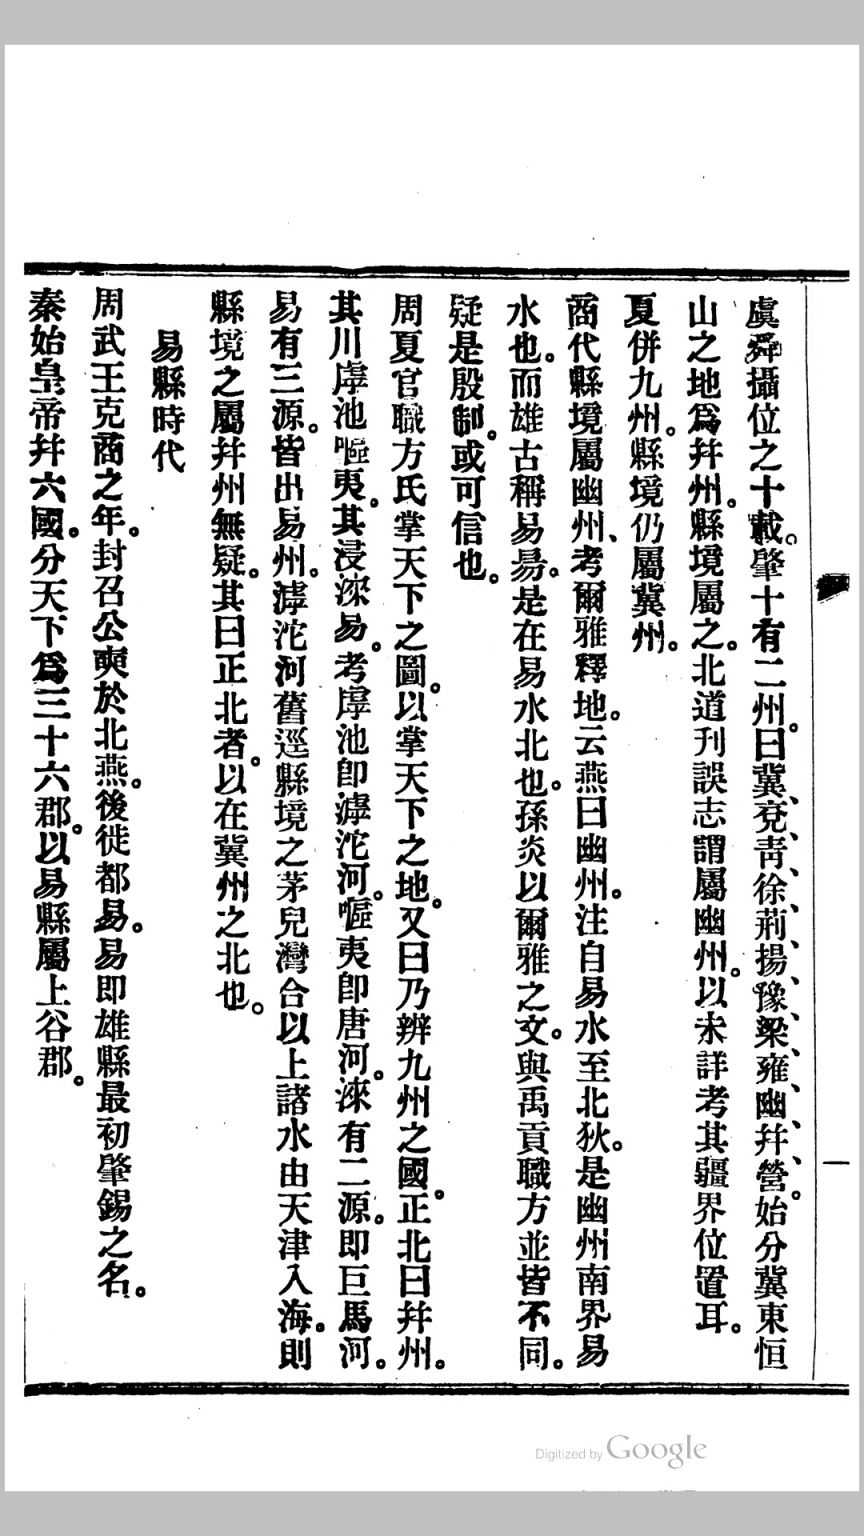 虞舜攝位之十載。肇十有二州。曰冀、兗、靑、徐、荊、揚、豫、梁、雍、幽、幷、營。始分冀東恒
山之地爲幷州。縣境屬之。北道刊誤志謂屬幽州。以未詳考其疆界位置耳。
夏併九州。縣境仍屬冀州。
商代縣境屬幽州、考爾雅釋地。云燕曰幽州。注自易水至北狄。是幽州南界易
水也。而雄古稱易昜。是在易水北也。孫炎以爾雅之文。與禹貢職方並皆不同。
疑是殷制。或可信也。
周夏官職方氏掌天下之圖。以掌天下之地。又曰乃辨九州之國。正北曰幷州。
其川虖池嘔夷。其浸淶易。考虖池卽滹沱河。嘔夷卽唐河。淶有二源。卽巨馬河。
易有三源。皆出易州。滹沱河舊逕縣境之茅兒灣合以上諸水由天津入海。則
縣境之屬幷州無疑。其曰正北者。以在冀州之北也。
易縣時代
周武王克商之年。封召公奭於北燕。後徙都易。易即雄縣最初肇錫之名。
秦始皇帝幷六國。分天下爲三十六郡。以易縣屬上谷郡。
一
Digitized by Google